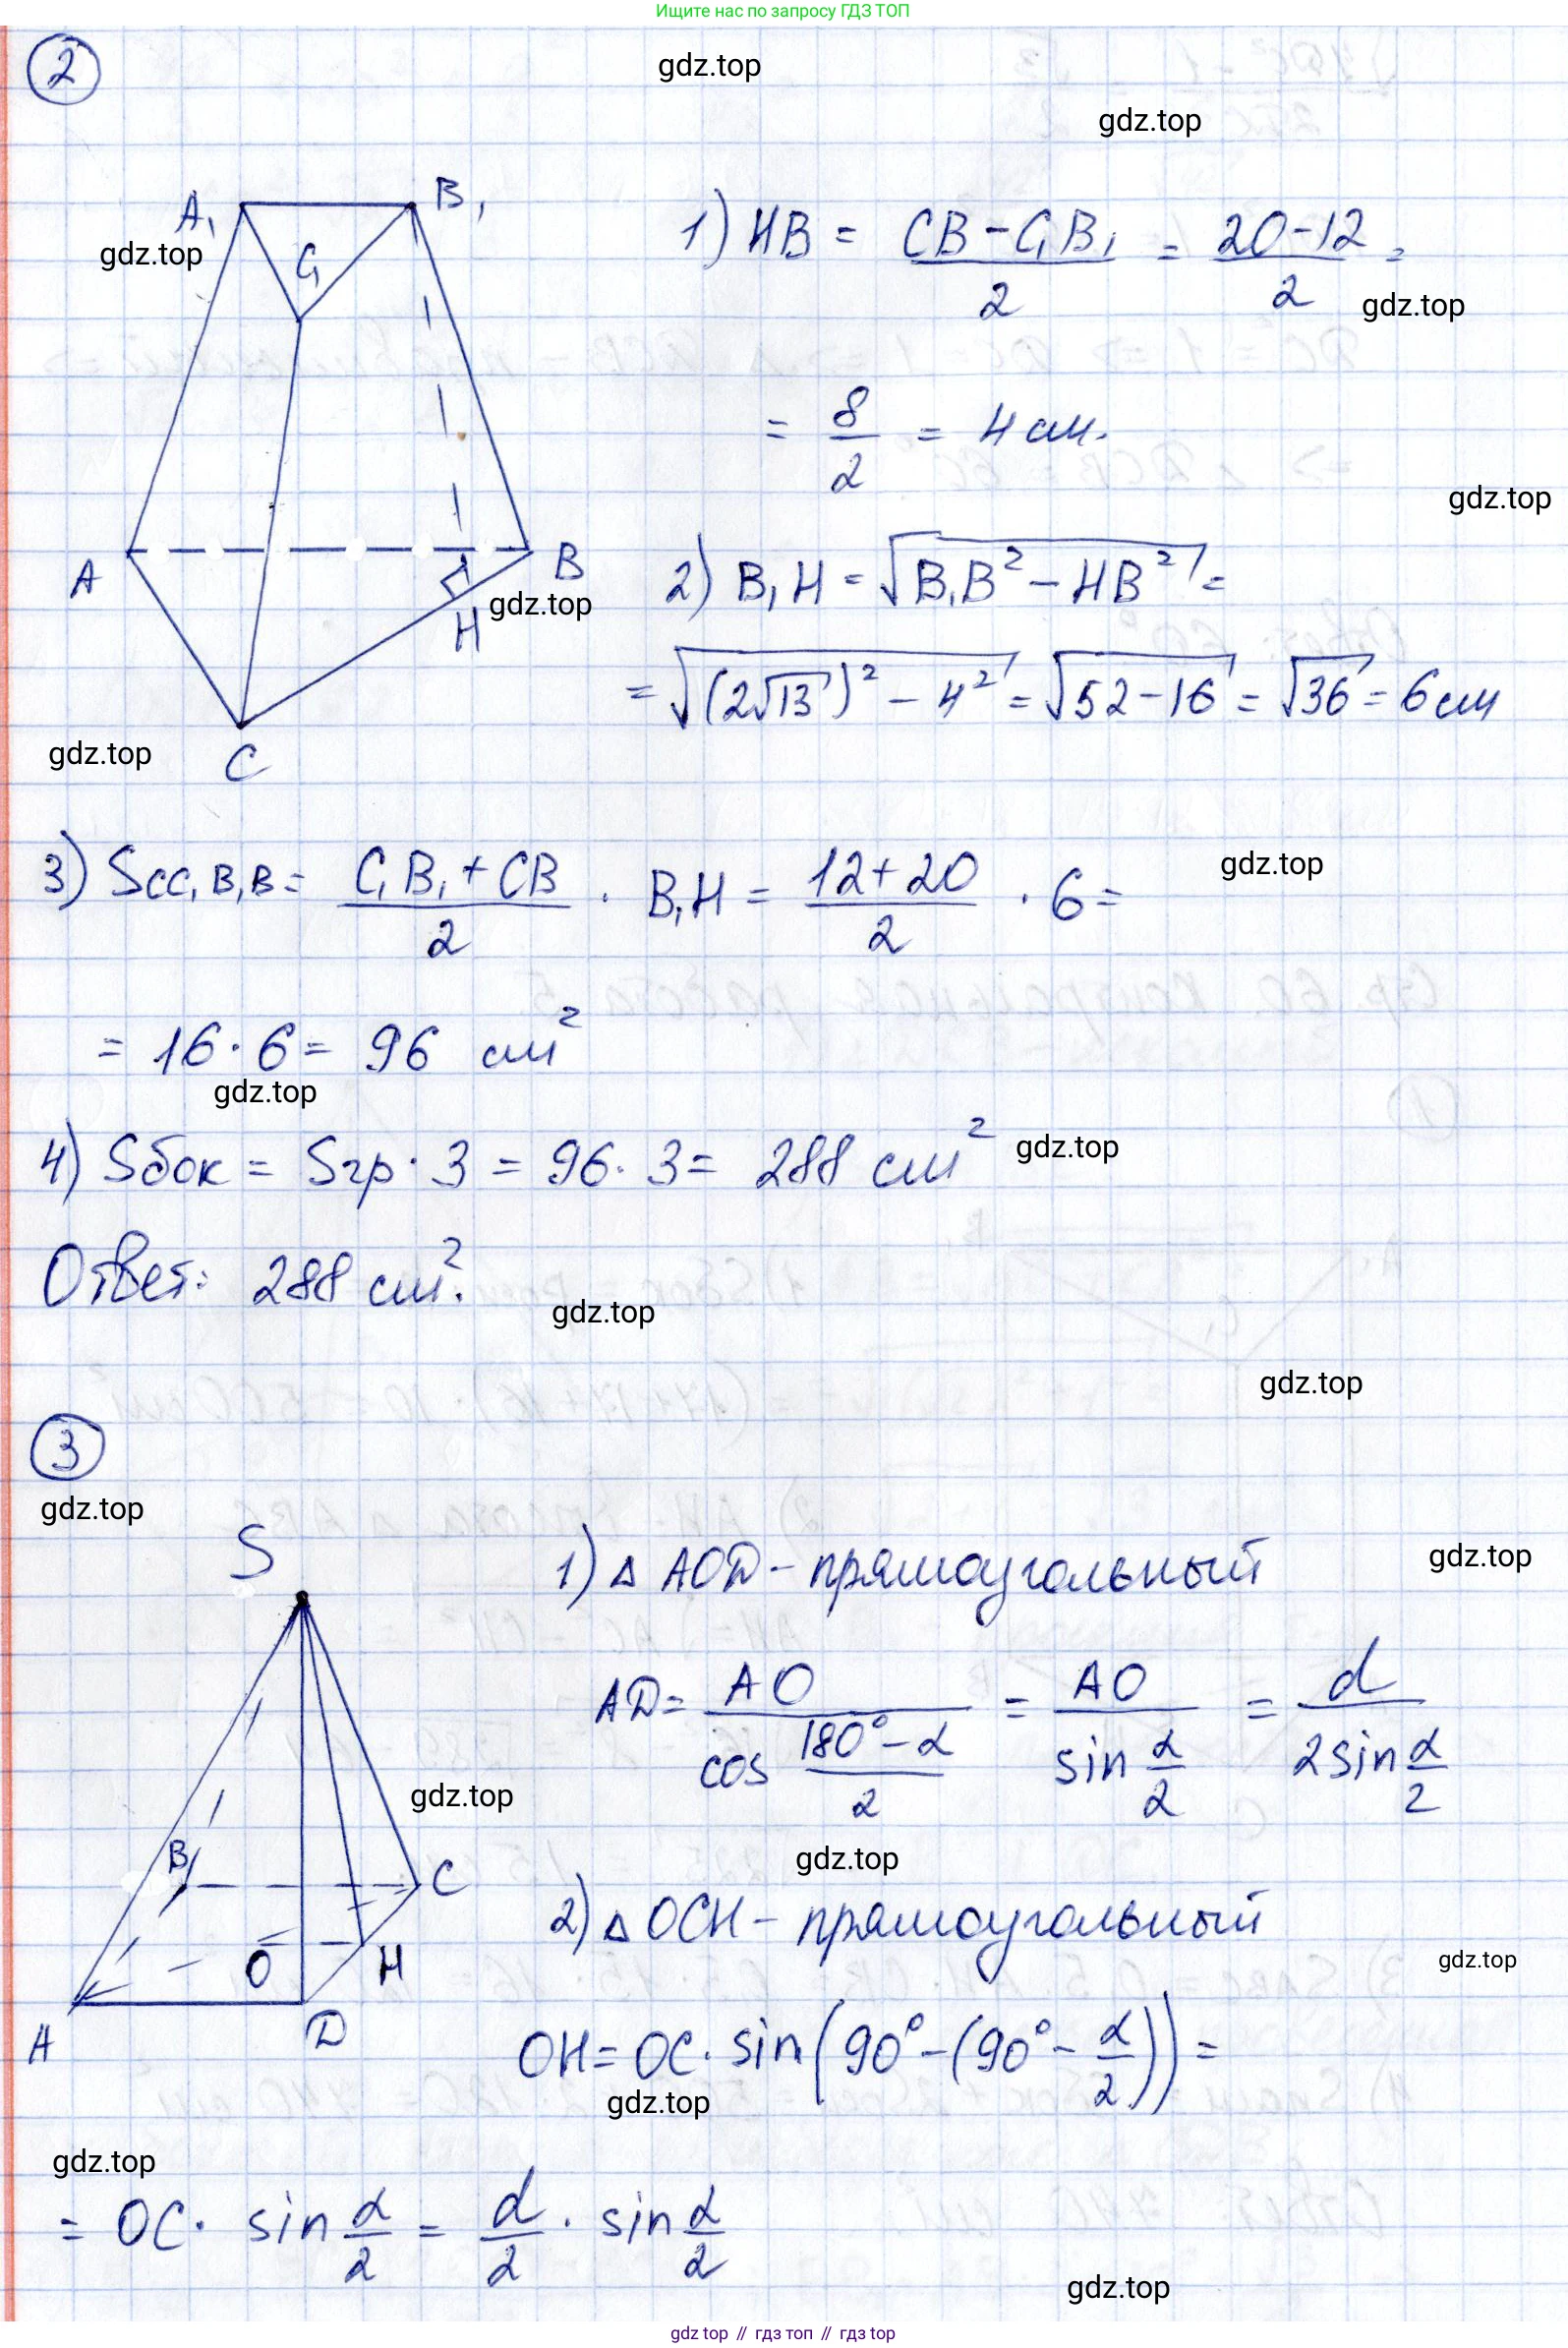 Ищите нас по запросу ГДЗ ТОП
2
gdz.top
gdz.top
A₁ B₁ C₁
gdz.top
1) HB = (CB - C₁B₁)/2 = (20-12)/2 =
gdz.top
= 8/2 = 4 см.
gdz.top
A B H C
gdz.top
2) B₁H = √(B₁B² - HB²) =
= √((2√13)² - 4²) = √(52-16) = √36 = 6 см
gdz.top
3) Scc₁B₁B = (C₁B₁ + CB)/2 · B₁H = (12+20)/2 · 6 =
gdz.top
= 16·6 = 96 см²
gdz.top
4) Sбок = Sгр · 3 = 96·3 = 288 см²
gdz.top
Ответ: 288 см².
gdz.top
gdz.top
3
gdz.top
S
1) △ AOD - прямоугольный
gdz.top
AD = AO/(cos (180°-α)/2) = AO/(sin α/2) = d/(2 sin α/2)
gdz.top
gdz.top
B C O H A D
2) △ OCH - прямоугольный
gdz.top
OH = OC · sin(90° - (90° - α/2)) =
gdz.top
gdz.top
= OC · sin α/2 = d/2 · sin α/2
gdz.top
gdz top // гдз топ // гдз top